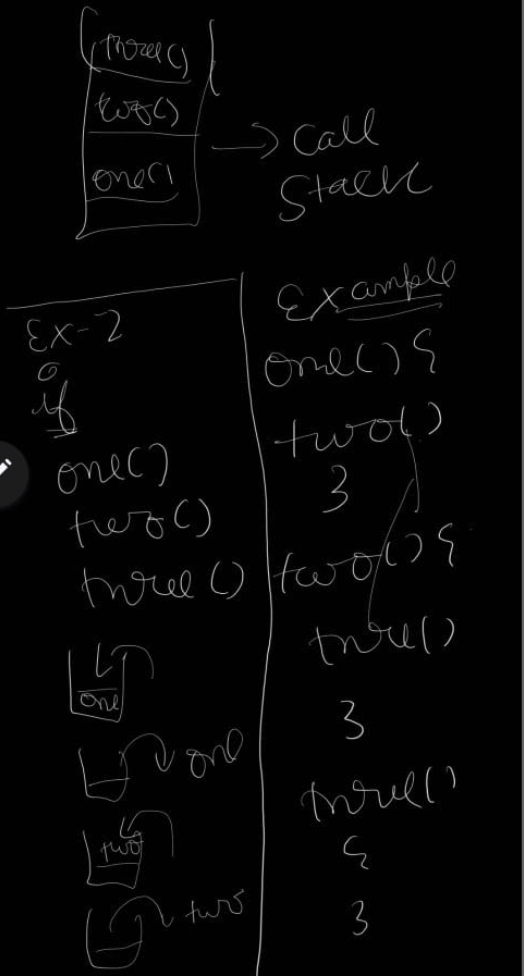 three()
two()
one()
→ Call
Stack
Ex-2
if
one()
two()
three()
one
one
two
two
Example
one() {
two()
}
two() {
three()
}
three()
{
}